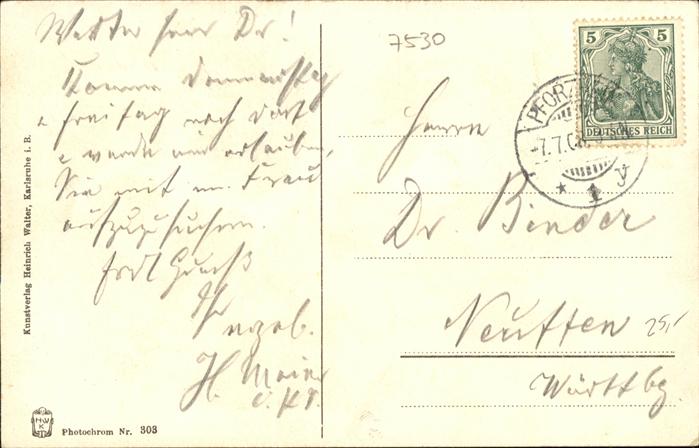 Werter Herr Dr!
Komme Donnerstag
o Freitag nach dort
u werde mir erlauben,
Sie mit m. Frau
aufzusuchen.
frdl Gruß
Ihr
ergeb.
H. Maier
7530
5 5
DEUTSCHES REICH
PFORZ
-7.7.0
* 1 y
Herrn
Dr. Binder
Neuffen
Württbg.
25,-
Kunstverlag Heinrich Walter, Karlsruhe i. B.
HWK
Photochrom Nr. 303